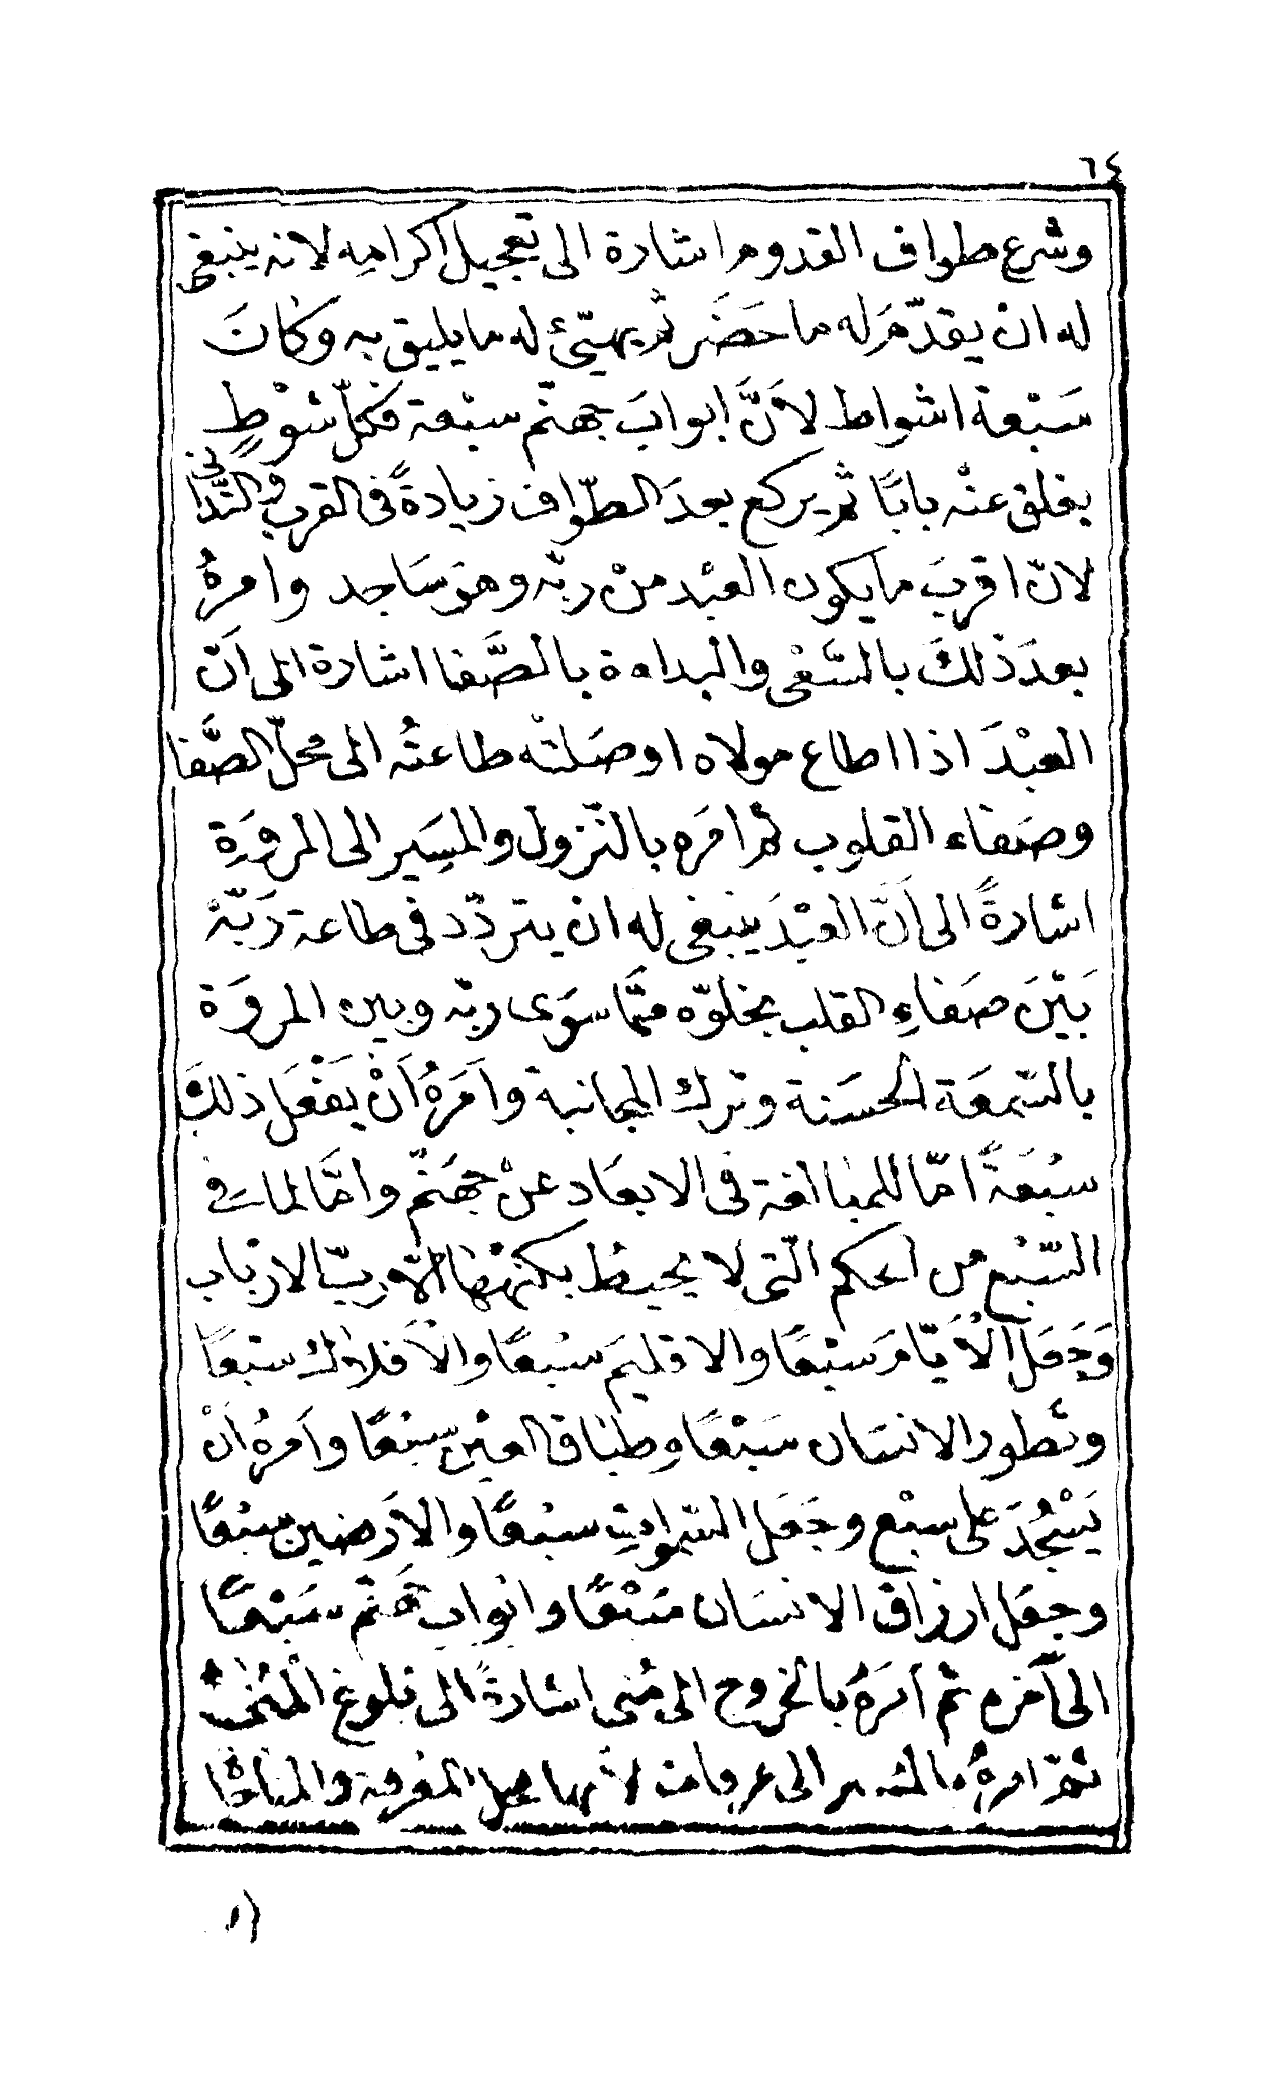 ٦٤
وشرع طواف القدوم اشارة الى تعجيل اكرامه لانه ينبغى
له ان يقدّمَ له ما حَضَر ثم يهيّئ له ما يليق به وكانَ
سَبْعة اشواط لأنَّ ابوابَ جهنّم سبْعة فكلّ شوْطٍ
يغلق عنْه بابًا ثم يركع بعدَ الطّواف زيادةً فى القرب والتّدانى
لانّ اقربَ ما يكون العبْد منْ ربّه وهوَ سَاجد وامرهُ
بعدَ ذلكَ بالسّعْى والبداءة بالصَّفا اشارة الى اَنّ
العبْدَ اذا اطاع مولاه اوصَلتْه طاعتُه الى محلّ الصَّفا
وصَفاء القلوب ثم امَره بالنّزول والمسِير الى المروَة
اشارةً الى اَنّ العبْدَ ينبغى له ان يتردّد فى طاعة رَبّهْ
بَيْنَ صَفاءِ القلب بخلوّه ممَّا سوَى ربّه وبين المروَة
بالسّمعَة الحسَنة وترك المجانبة واَمَرهُ اَنْ يَفْعَل ذلكَ
سبْعَةً امّا للمبالغة فى الابعَاد عنْ جهَنّم وامَّا لما فى
السّبْع من الحكم الّتى لا يحيط بكنهْهَا الاّ ربّ الارْباب
وَجَعَل الأيّامَ سبْعًا والاقليمَ سبْعًا والأفلاك سبْعًا
وتَطور الانسَان سَبْعًا وطبَاق العيْن سبْعًا واَمرهُ اَنْ
يَسْجُدَ على سبْع وجَعَل السّمواتِ سبْعًا والاَرَضين سبْعًا
وجعَل ارزاق الانسَان سَبْعًا وابْواب جهَنّم سَبْعًا
الى آخره ثم اَمَرهُ بالخروج الى مُنى اشارةً الى بلوغ المُنى
ثمّ امرهُ بالمسير الى عرفات لأنها محل المعْرفة والمناجاة